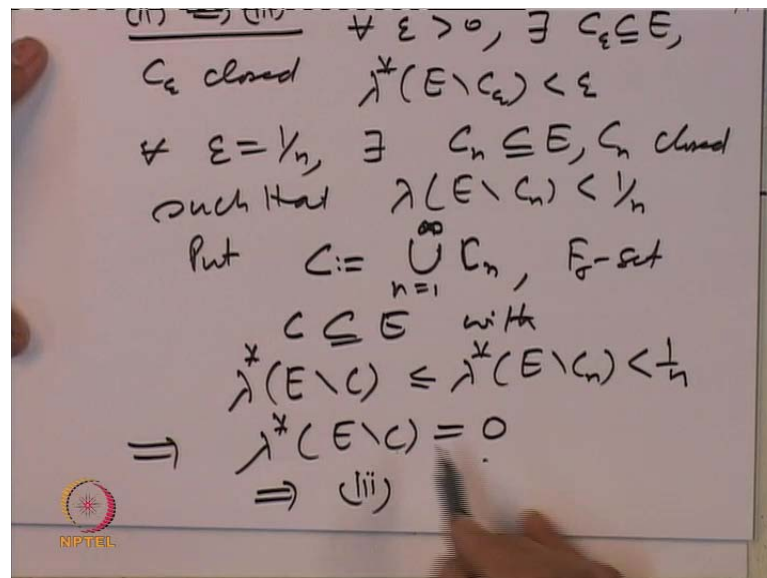 (ii) ⟹ (iii) ∀ ε > 0, ∃ C_ε ⊆ E,
C_ε closed λ*(E \ C_ε) < ε
∀ ε = 1/n, ∃ C_n ⊆ E, C_n closed
such that λ(E \ C_n) < 1/n
Put C := ∞⋃n=1 C_n, F_σ-set
C ⊆ E with
λ*(E \ C) ≤ λ*(E \ C_n) < 1/n
⟹ λ*(E \ C) = 0
⟹ (iii)
NPTEL